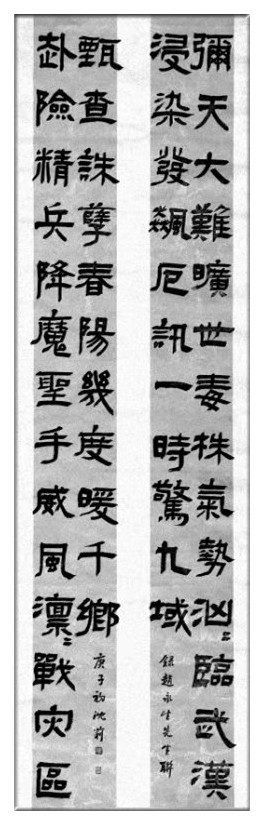 彌天大難曠世毒株氣勢汹〻臨武漢
浸染發飆厄訊一時驚九域
錄趙永生先生聯
赴險精兵降魔聖手威風凛〻戰灾區
甄查誅孽春陽幾度暖千鄉
庚子初沈